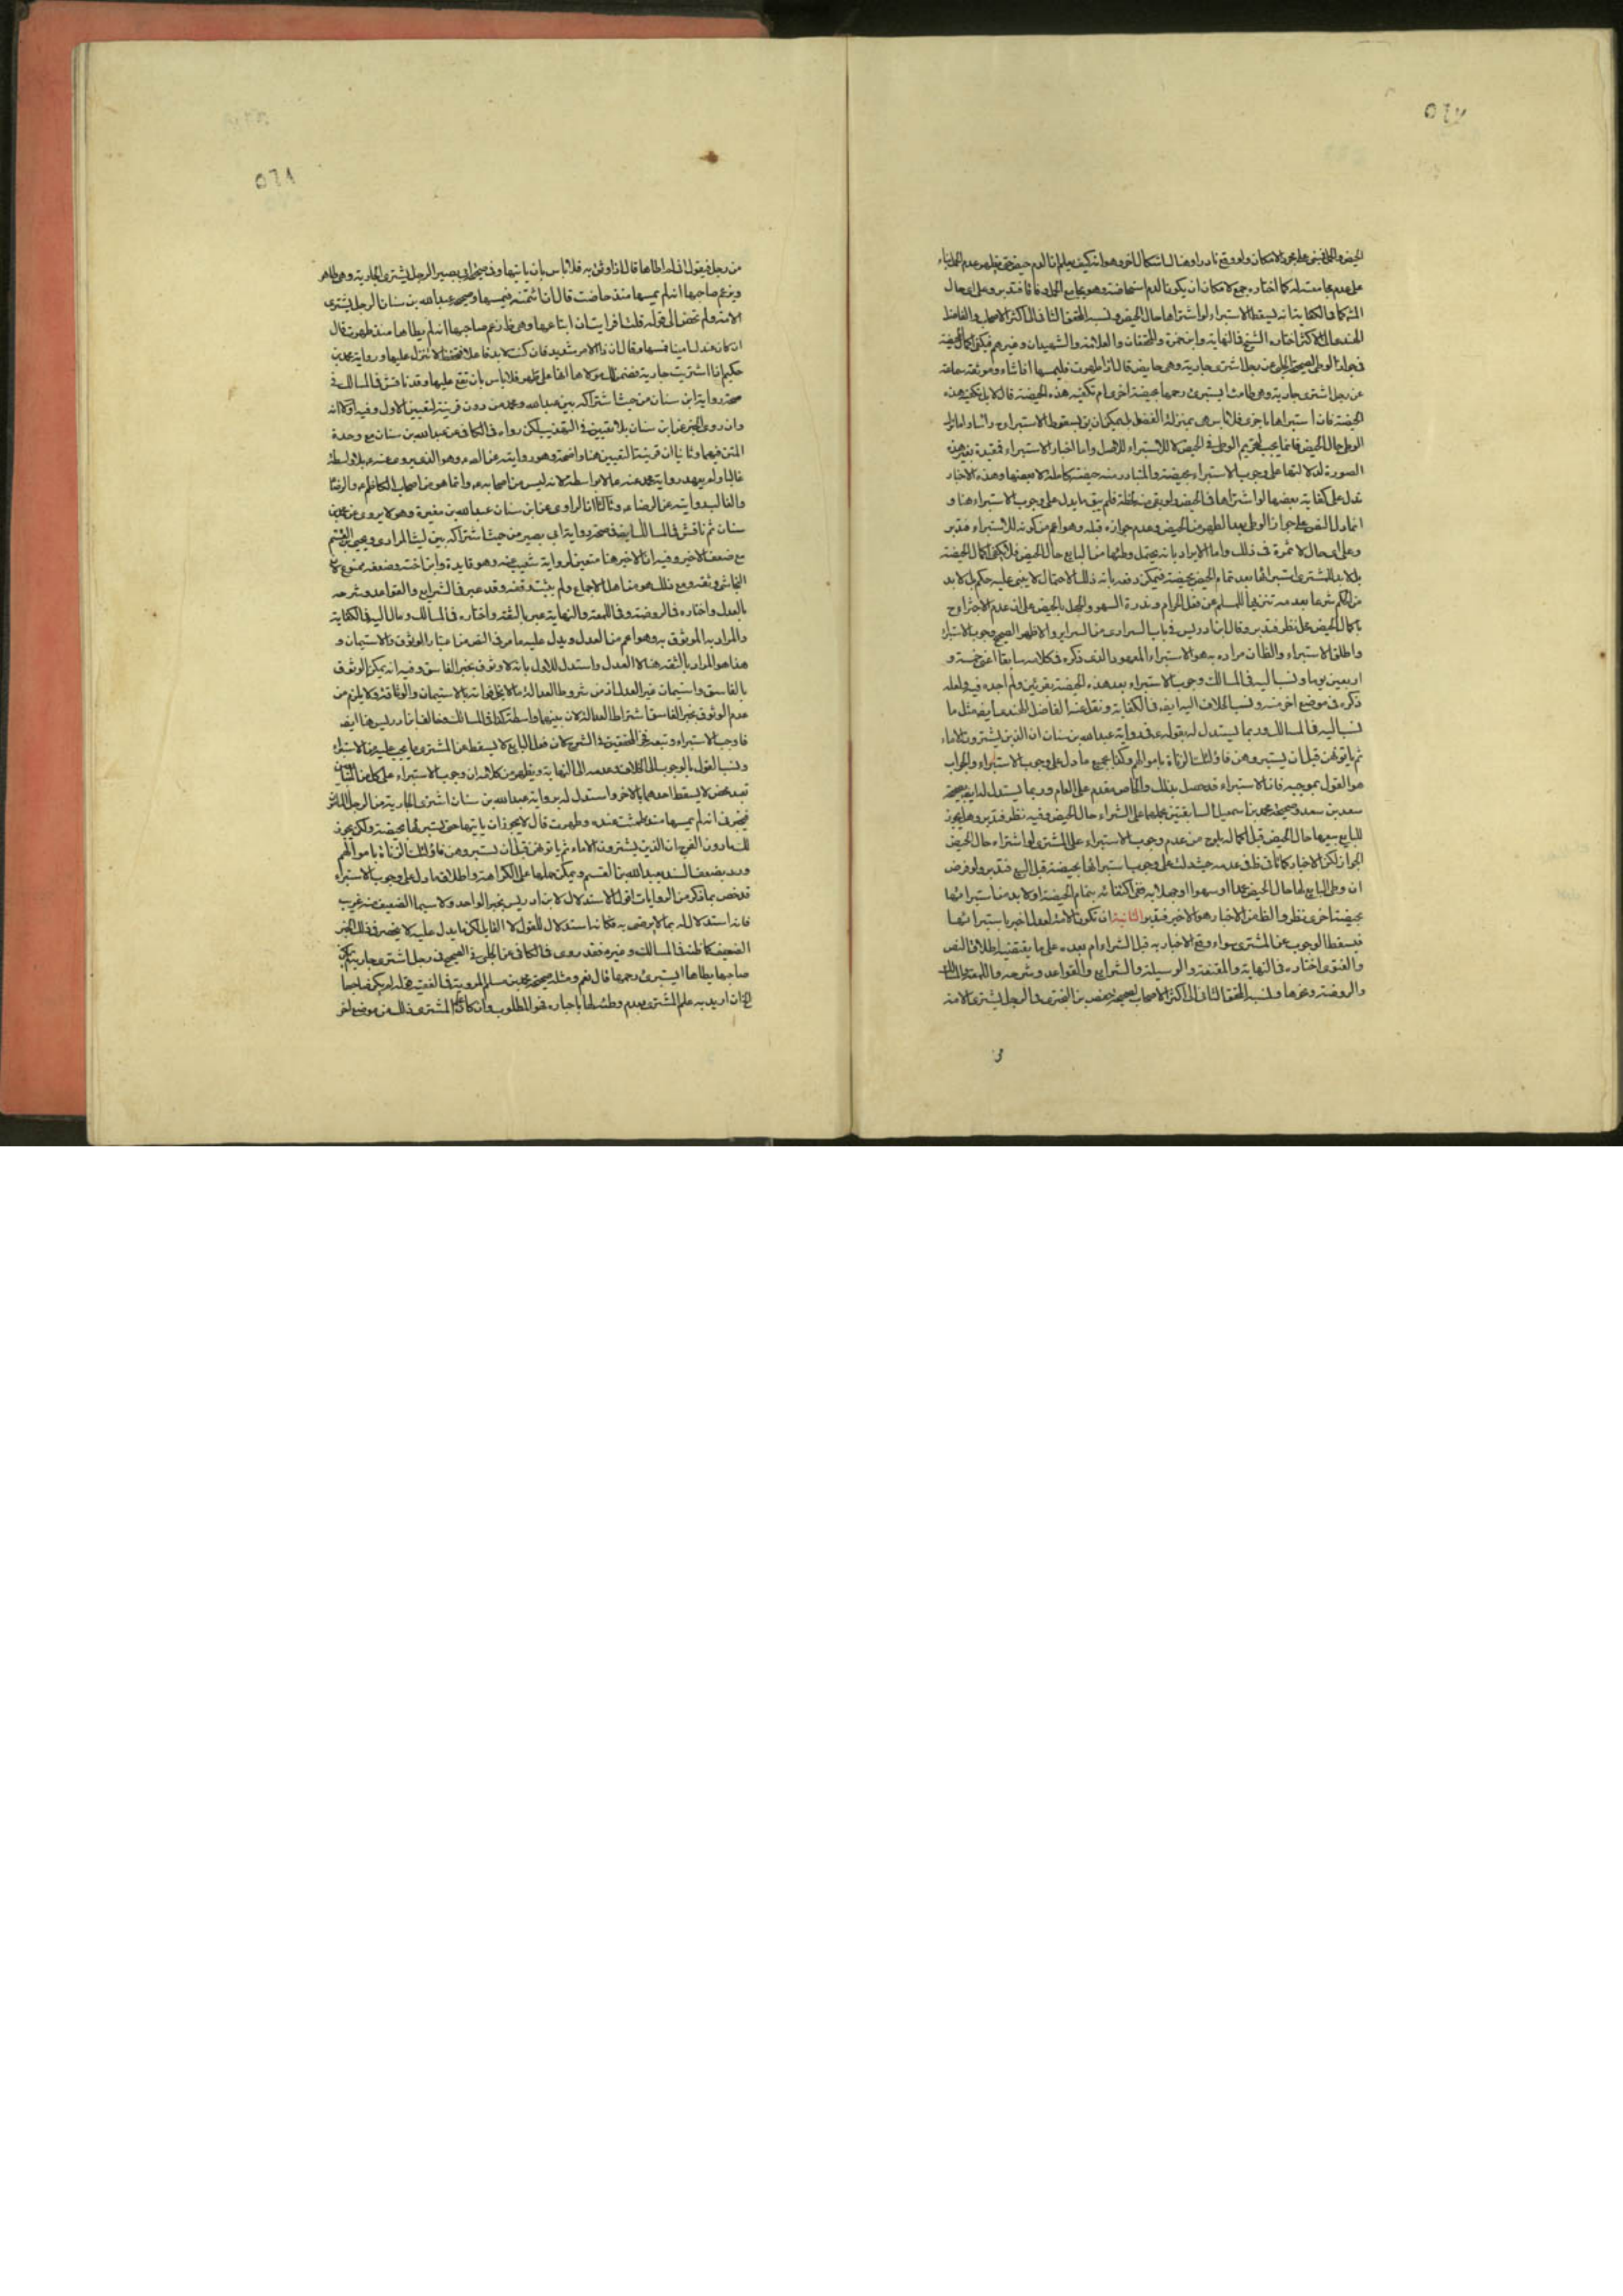 ٥٦٧
على عدم مجامعته له كما اختاره جمع لامكان ان يكون الدم استحاضة وهو يجامع الحمل فتدبر وعلى اي حال
المشهور في الكفاية انه يسقط الاستبراء لو اشتراها حال الحيض ونسبه المحقق الثاني الى اكثر الاصحاب والفاضل
الهندي الى الاكثر اختاره الشيخ في النهاية وابن حمزة والمحققان والعلامة والشهيدان وغيرهم فيكفي اكمال الحيضة
الحلبي عن رجل اشترى جارية وهي حايض قال اذا طهرت فليمسها ان شاء وموثقة سماعة
عن رجل اشترى جارية وهي طامث ايستبرئ رحمها بحيضة اخرى ام تكفيه هذه الحيضة قال لا بل تكفيه هذه
الحيضة فان استبراها باخرى فلا باس هي بمنزلة الفضل
الوطي حال الحيض فانما يجب لتحريم الوطي في الحيض لا للاستبراء واما اخبار الاستبراء فمقيدة بغير هذه
الصورة لدلالتها على وجوب الاستبراء بحيضة والمتبادر منه حيضة كاملة لا بعضها وهذه الاخبار
تدل على كفاية بعضها لو اشتراها في الحيض ولو بقي منه لحظة فلم يبق ما يدل على وجوب الاستبراء هنا و
انما دل النص على جواز الوطي بعد الطهر من الحيض وعدم جوازه قبله وهو اعم من كونه للاستبراء فتدبر
وعلى اي حال لا ثمرة في ذلك واما الايراد بانه يحتمل وطئها من البايع حال الحيض فلا يكفي اكمال الحيضة
بل لا بد للمشتري استبرائها بعد تمام الحيض بحيضة فيمكن دفعه بانه ذلك الاحتمال لا يبنى عليه حكم بل لا بد
من الحكم شرعا بعدمه تنزيها للمسلم عن فعل الحرام وندرة السهو والجهل بالحيض
باكمال الحيض على نظر فتدبر وقال ابن ادريس في باب السراري من السراير والاظهر الصحيح وجوب الاستبراء
واطلق الاستبراء والظاهر ان مراده به هو الاستبراء المعهود الذي ذكره في كلامه سابقا اعني خمسة و
اربعين يوما ونسب اليه في المسالك وجوب الاستبراء بعد هذه الحيضة بقرئين ولم اجده فيه ولعله
ذكره في موضع اخر منه ونسب الخلاف اليه ايضا في الكفاية ونقل عنه الفاضل الهندي ايضا مثل ما
نسب اليه في المسالك وربما يستدل له بقوله في رواية عبد الله بن سنان ان الذين يشترون الاماء
ثم ياتوهن قبل ان يستبروهن فاولئك الزناة باموالهم وكذا بجميع ما دل على وجوب الاستبراء والجواب
هو القول بموجبه فان الاستبراء قد حصل بذلك والخاص مقدم على العام وربما يستدل له ايضا بصحيحة
سعد بن سعد وصحيحة محمد بن اسمعيل السابقتين بحملهما على الشراء حال الحيض وفيه نظر فتدبر وهل يجوز
للبايع بيعها حال الحيض قبل اكماله يلوح من عدم وجوب الاستبراء على المشتري لو اشتراه حال الحيض
ان وطئ البايع لها حال الحيض عمدا او سهوا او جهلا به ففي اكتفائه بتمام الحيضة او لا بد من استبرائها
بحيضة اخرى نظر والظاهر من الاخبار هو الاخير فتدبر الثانية ان تكون الامة لعدل اخبر باستبرائها
فيسقط الوجوب عن المشتري سواء وقع الاخبار به قبل الشراء ام بعده على ما يقتضيه اطلاق النص
والفتوى اختاره في النهاية والمقنعة والوسيلة والشرايع والقواعد وشرحه واللمعة والمسالك
والروضة وغيرها ونسبه المحقق الثاني الى اكثر الاصحاب لصحيحة حفص بن البختري في الرجل يشتري الامة
٥٦٨
من رجل فيقول اني لم اطاها قال اذا وثق به فلا باس بان ياتيها وفي صحيح ابي بصير الرجل يشتري الجارية وهي طاهر
ويزعم صاحبها انه لم يمسها منذ حاضت قال ان ائتمنته فيمسها وصحيحة عبد الله بن سنان الرجل يشتري
الامة ولم تحض الى قوله قلت افرايت ان ابتاعها وهي طاهر زعم صاحبها انه لم يطاها منذ طهرت قال
ان كان عندك امينا فمسها وقال ان ذا الامر شديد فان كنت لا بد فاعلا فتحفظ لا تنزل عليها ورواية محمد بن
حكيم اذا اشتريت جارية فضمن لك مولاها انها على طهر فلا باس بان تقع عليها وقد ناقش في المسالك في
صحة رواية ابن سنان من حيث اشتراكه بين عبد الله ومحمد من دون قرينة لتعيين الاول وفيه اولا انه
وان روى الخبر عن ابن سنان بلا تعيين في التهذيب لكن رواه في الكافي عن عبد الله بن سنان مع وحدة
المتن فيهما وثانيا ان قرينة التعيين هنا واضحة وهو روايته عن الص ع وهو الذي يروي عنه ع بلا واسطة
غالبا ولم يعهد رواية محمد عنه ع الا بواسطة لانه ليس من اصحابه ع وانما هو من اصحاب الكاظم ع والرضا
والغالب روايته عن الرضا ع وثالثا ان الراوي عن ابن سنان عبد الله بن مغيرة وهو لا يروي عن محمد بن
سنان ثم ناقش في المسالك ايضا في صحة رواية ابي بصير من حيث اشتراكه بين ليث المرادي ويحيى بن القسم
مع ضعف الاخير وفيه ان الاخير هنا متعين لرواية شعيب عنه وهو قايده وابن اخته وضعفه ممنوع لان
النجاشي وثقه ومع ذلك هو من اهل الاجماع ولم يثبت وقفه وقد عبر في الشرايع والقواعد وشرحه
بالعدل واختاره في الروضة وفي اللمعة والنهاية عبر بالثقة واختاره في المسالك ومال اليه في الكفاية
والمراد به الموثوق به وهو اعم من العدل ويدل عليه ما مر في النص من اعتبار الوثوق والاستيمان و
هذا هو المراد بالثقة هنا لا العدل واستدل للاول بانه لا وثوق بخبر الفاسق وفيه انه يمكن الوثوق
عدم الوثوق بخبر الفاسق اشتراط العدالة لان بينهما واسطة كذا في المسالك وخالف ابن ادريس هنا ايضا
فاوجب الاستبراء وتبعه فخر المحققين في الشرح لان فعل البايع لا يسقط عن المشتري ما يجب عليه من الاستبراء
ونسب القول بالوجوب الى الخلاف وعدمه الى النهاية ويظهر من كلامه ان وجوب الاستبراء على كل من المتبايعين
تعبد محض لا يسقط احدهما بالاخر واستدل له برواية عبد الله بن سنان اشترى الجارية من الرجل المامون
فيخبرني انه لم يمسها منذ طمثت عنده وطهرت قال لا يجوز ان ياتيها حتى يستبرئها بحيضة ولكن يجوز
لك ما دون الفرج ان الذين يشترون الاماء ثم ياتوهن قبل ان يستبروهن فاولئك الزناة باموالهم
ورد بضعف السند بعبد الله بن القسم ويمكن حملها على الكراهة واطلاق ما دل على وجوب الاستبراء
قد خص بما ذكر من الروايات اقول الاستدلال لابن ادريس بخبر الواحد ولا سيما الضعيف منه غريب
فانه استدلال له بما لا يرضى به فكانه استدلال للقول لا القايل لكن ما يدل عليه لا ينحصر في ذلك الخبر
الضعيف كما ظنه في المسالك وغيره فقد روى في الكافي عن الحلبي في الصحيح في رجل اشترى جارية لم يكن
صاحبها يطاها ايستبرئ رحمها قال نعم ومثله صحيحة محمد بن مسلم المروية في الفقيه
ان اريد به علم المشتري بعدم وطئه لها باخباره فهو المطلوب